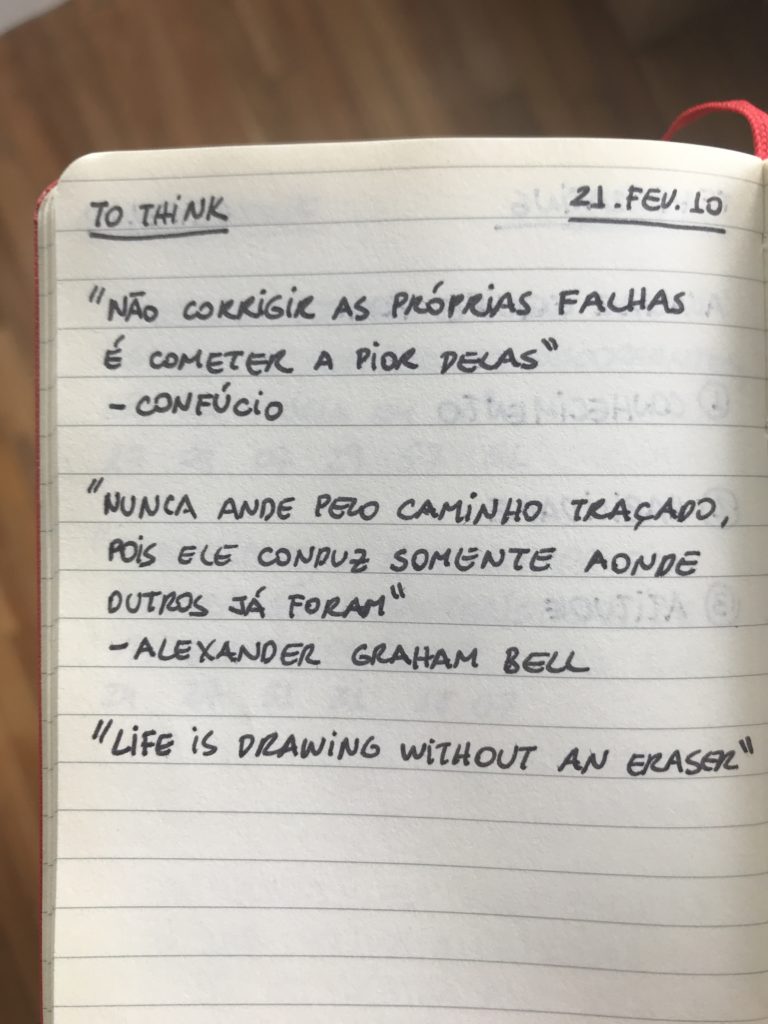 TO THINK 21.FEV.10
"NÃO CORRIGIR AS PRÓPRIAS FALHAS
É COMETER A PIOR DELAS"
- CONFÚCIO
"NUNCA ANDE PELO CAMINHO TRAÇADO,
POIS ELE CONDUZ SOMENTE AONDE
OUTROS JÁ FORAM"
- ALEXANDER GRAHAM BELL
"LIFE IS DRAWING WITHOUT AN ERASER"